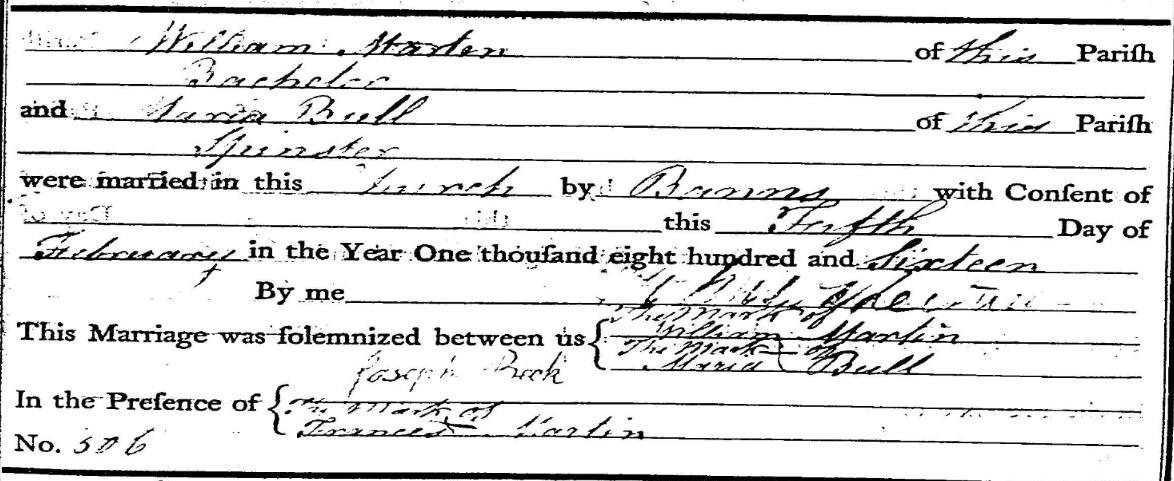 William Martin of this Parish
Bachelor
and Maria Bull of this Parish
Spinster
were married in this Church by Banns with Consent of
this Day of
February in the Year One thousand eight hundred and Sixteen
By me
The Mark of
This Marriage was solemnized between us { William Martin
The Mark of
Maria Bull
Joseph
In the Presence of { The Mark of
Frances Martin
No. 506